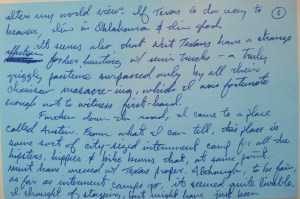 alters my world view. If Texas is doorway to
heaven, dim is Oklahoma &
It seems also, that West Texans have a strange
for hunting w/ semi trucks – a truly
grizzly pastime surpassed only by all their
chainsaw massacre-ing, which I am fortunate
enough not to witness first-hand.
Further down the road, I came to a place
called Austin. From what I can tell, this place is
some sort of city-sized internment camp for all the
hipsters, hippies & bike bums that, at some point,
must have messed w/ Texas proper. Although, to be fair
as far as internment camps go, it seemed quite livable.
I thought of staying, but might have just been